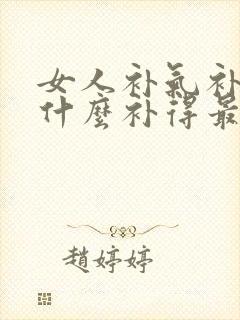 女人补氣补
什麼补得最
趙婷婷